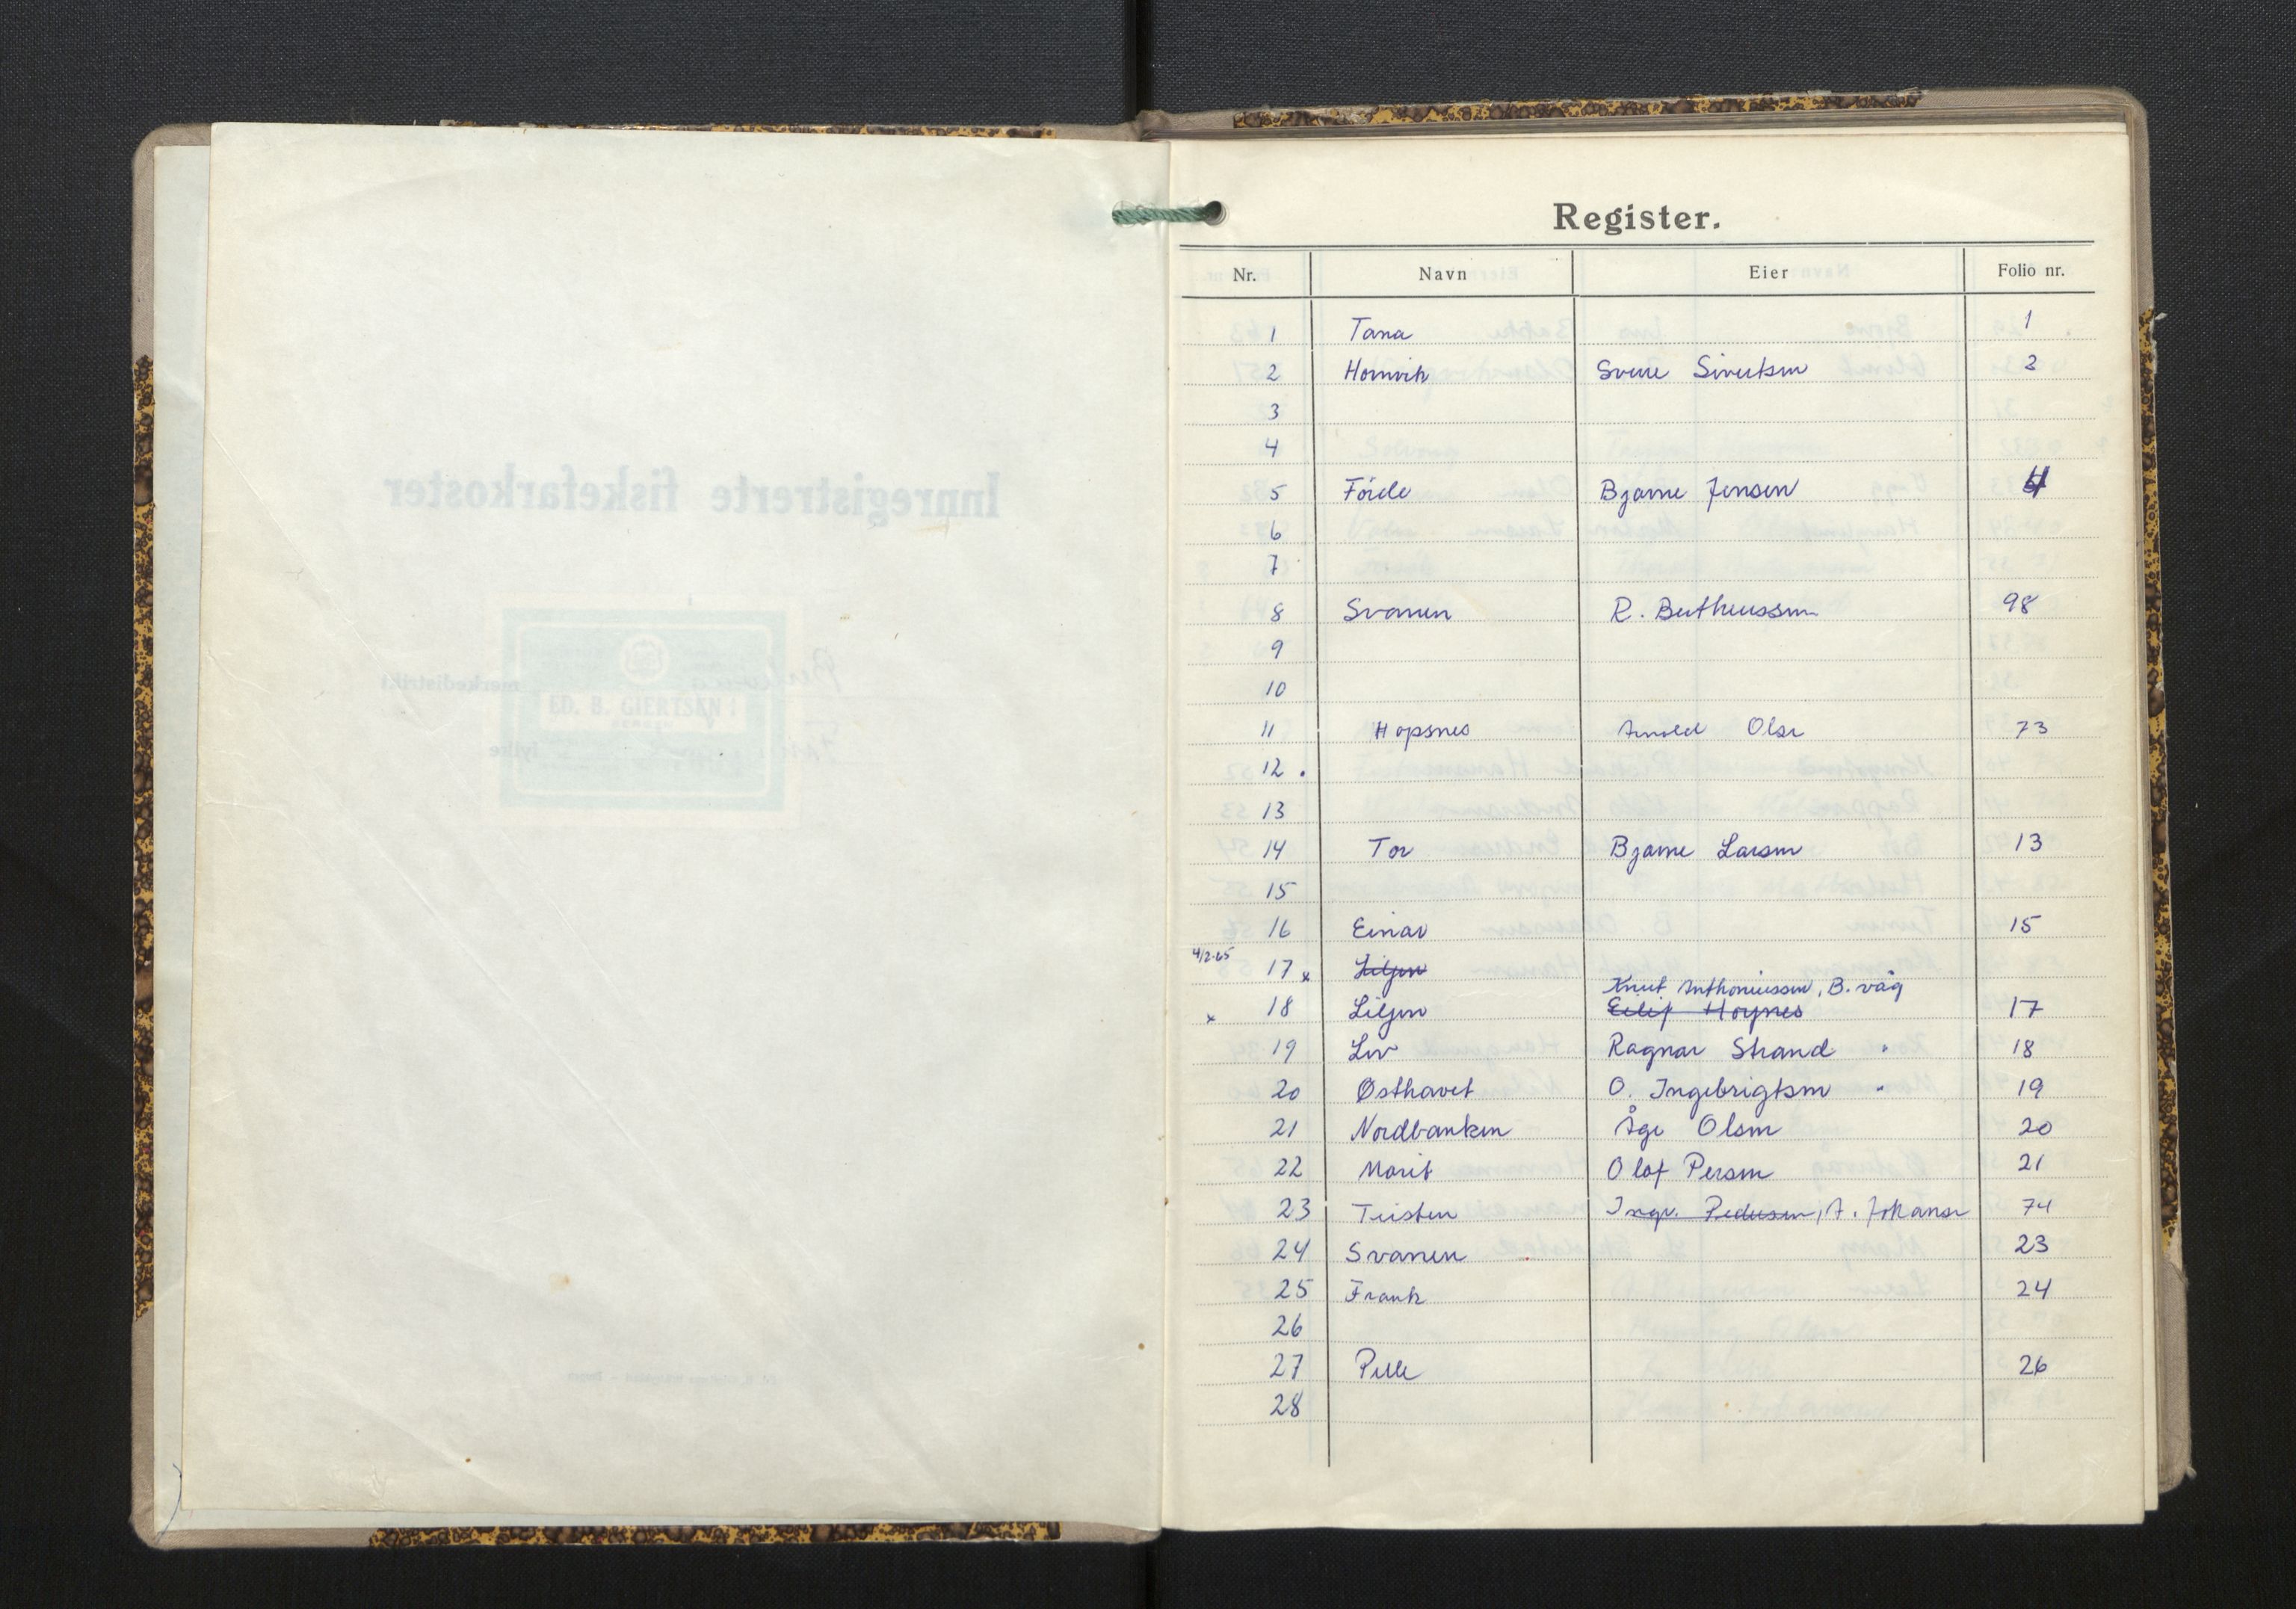 Innregistrerte fiskefarkoster
merkedistrikt
ED. B. GIERTSEN
BERGEN
fylke
Register.
Nr. Navn Eier Folio nr.
1 Tana 1
2 Hornvik Sverre Sivertsen 2
3
4
5 Förde Bjarne Jensen 4
6
7
8 Svanen R. Bertheussen 98
9
10
11 Hopsnes Arnold Olsen 73
12 .
13
14 Tor Bjarne Larsen 13
15
16 Einar 15
4/2-65 17 x Liljen
Knut Anthoniussen, B.våg
x 18 Liljen Eilif Høynes 17
19 Liv Ragnar Strand " 18
20 Østhavet O. Ingebrigtsen " 19
21 Nordbanken Åge Olsen 20
22 Marit Olaf Persen 21
23 Teisten Ingv. Pedersen, A. Johansen 74
24 Svanen 23
25 Frank 24
26
27 Pelle 26
28